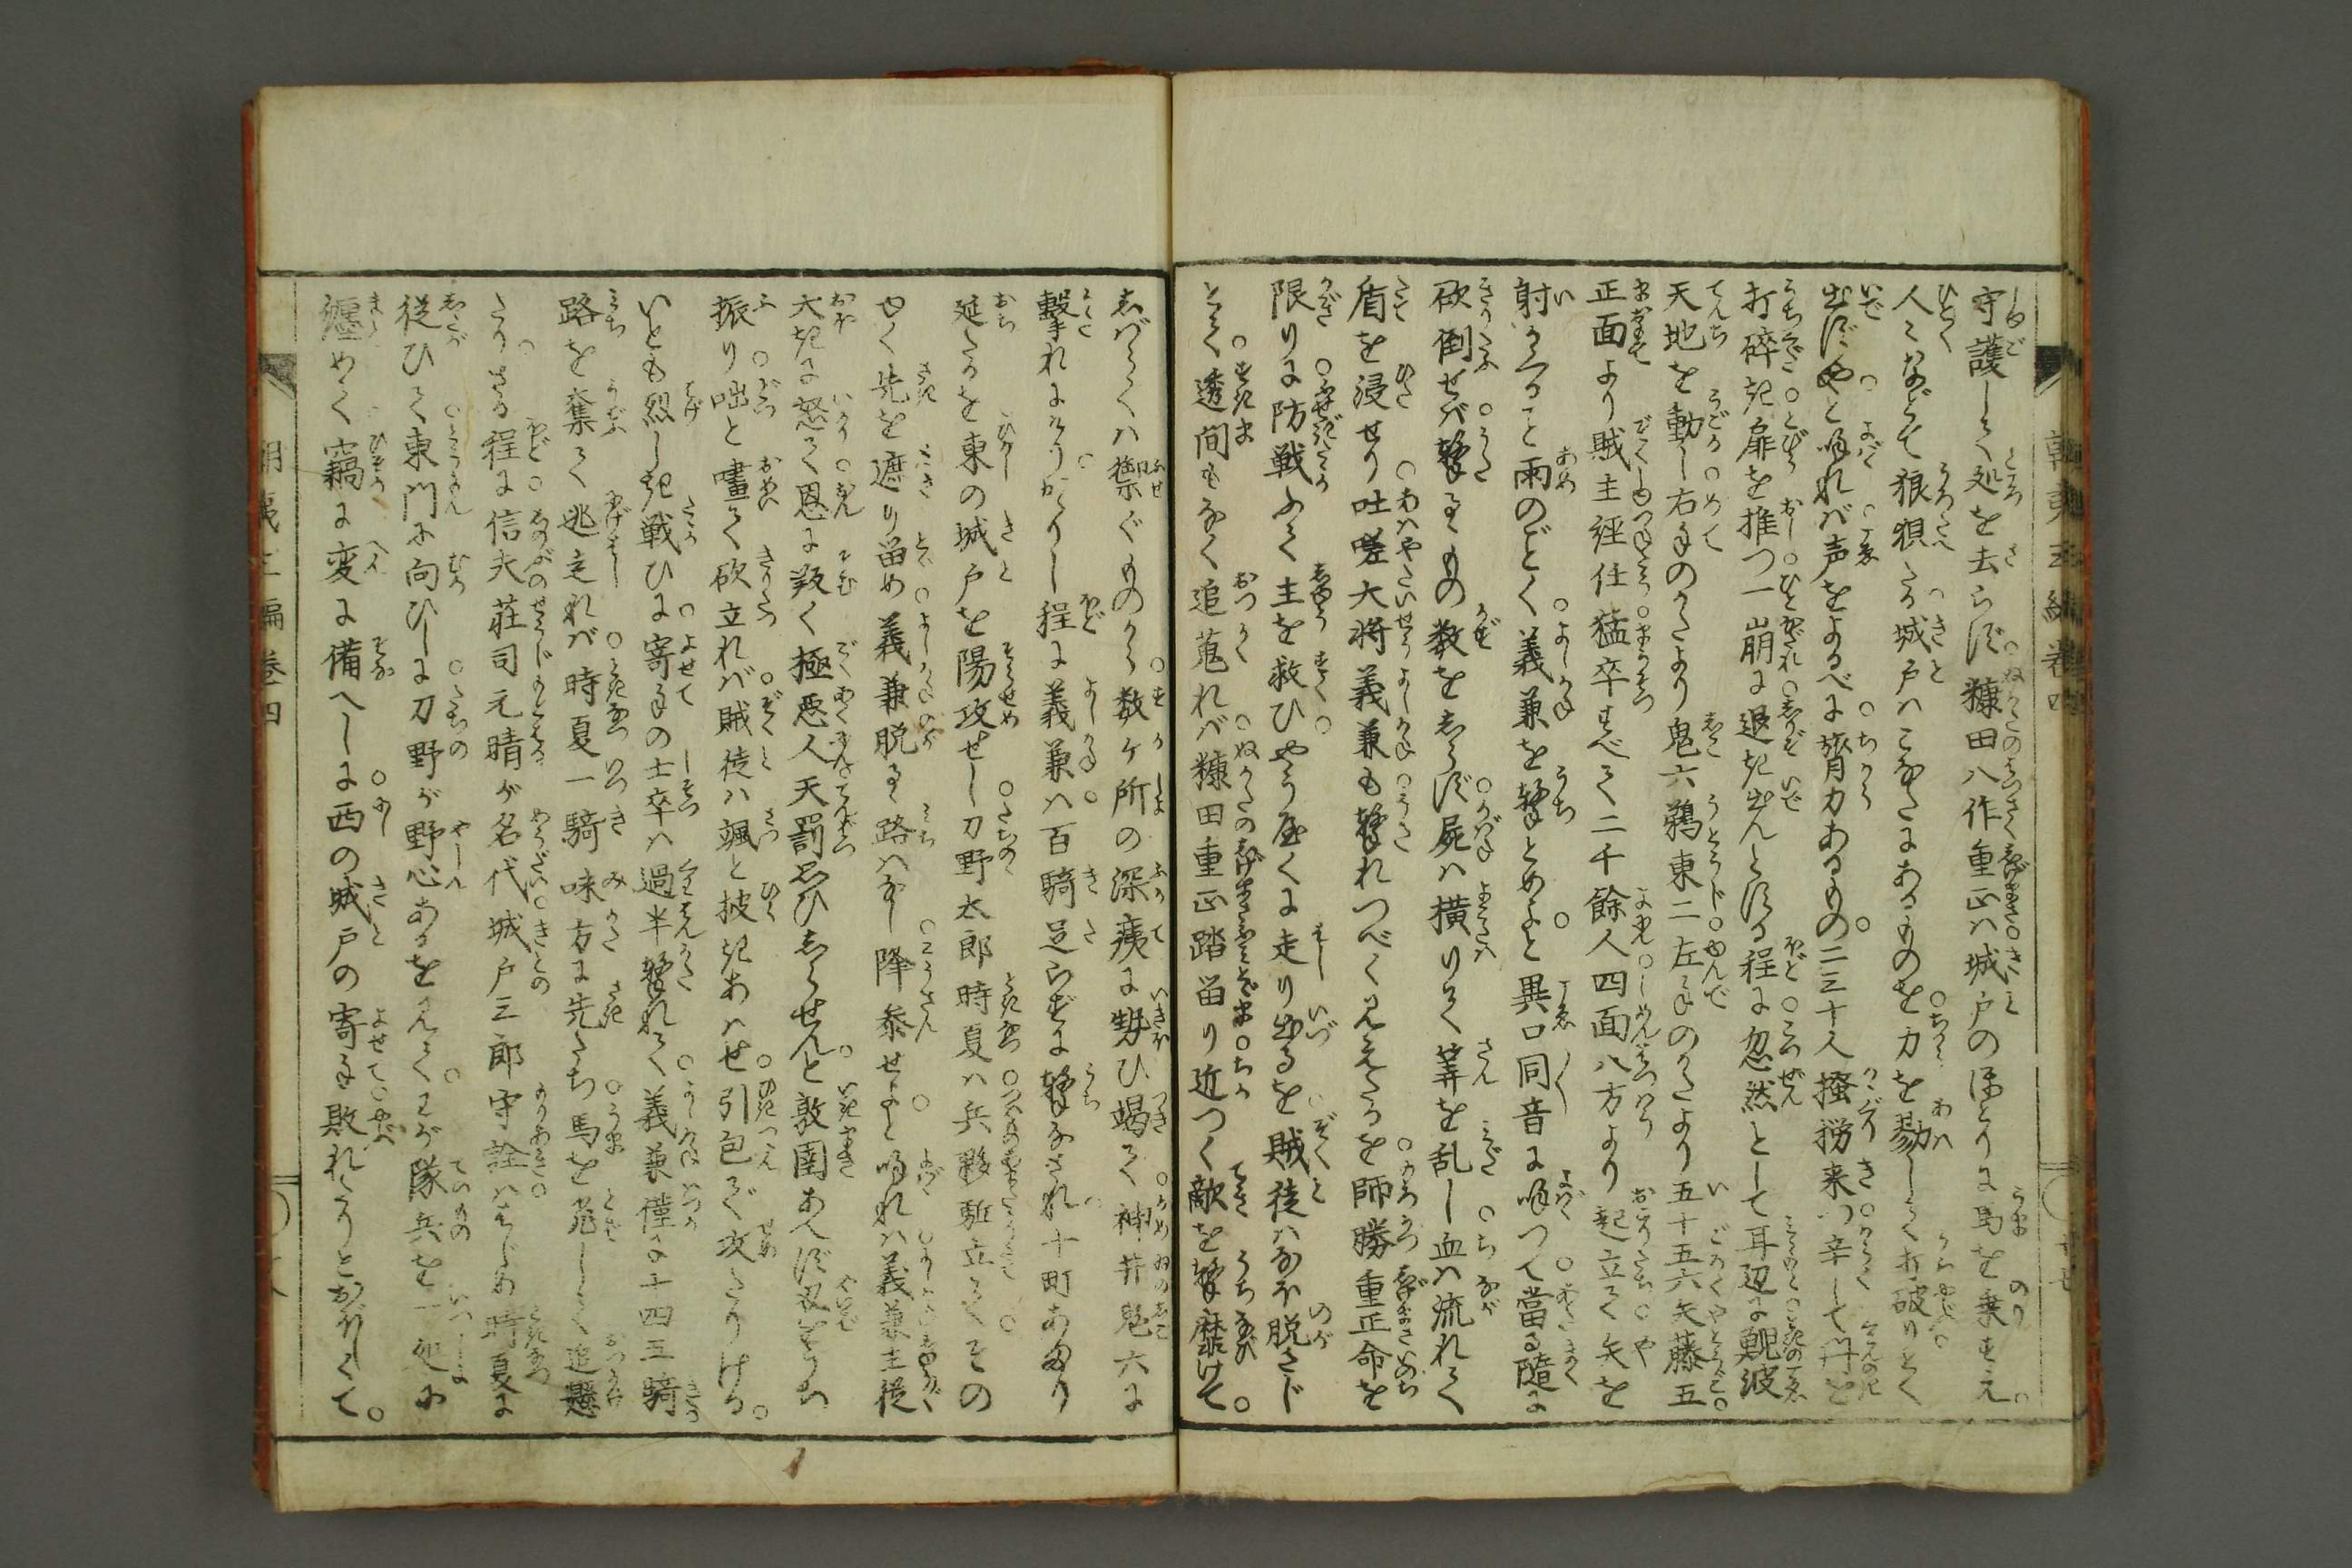 守護して処を去らず。糠田八作重正は城戸のほとりに馬を乗すえ。
人々なみて狼狽たる城戸はこなたにあるものを。力を勠して打破りとく
出ずやと喚れば。声をよるべに。膂力あるもの。二三十人掻撈来つ。辛して閂を
打碎き。扉を推つ一崩に。退き出んとする程に。忽然として耳辺に。鯢波
天地を動し。右手のかたより鬼六鵜東二。左手のかたより五十五六矢藤五。
正面より賊主經任。猛卒すべて二千餘人。四面八方より起立て。矢を
射かくること雨のごとく。義兼を撃とめよと。異口同音に喚つゝ。當る隨に
砍倒せば。撃るゝもの数をしらず。屍は横りて筭を乱し。血は流れて
盾を浸せり。吐嗟大将義兼も。撃れつべく見えたるを。師勝重正命を
限りに防戦ふて。主を救ひやうやくに走り出るを。賊徒はなほ脱さじ
とて。透间もなく追蒐れば。糠田重正踏留り。近つく敵を撃靡けて。
しばらくは禦ぐものから。数ヶ所の深痍に勢ひ竭て。神井鬼六に
撃れにけり。かゝりし程に義兼は。百騎足らずに撃なされ。十町あまり
延たるを。東の城戸を陽攻せし。刀野太郎時夏は。兵夥駈立て。その
やく先を遮り留め。義兼脱るゝ路はなし。降参せよと喚れは。義兼主従
大きに怒て。恩に叛く極悪人。天罰思ひしらせんと。敦圉あへず刃をうち
振り。咄と嚍て砍立れば。賊徒は颯と披きあはせ。引包て攻たりける。
いとも烈しき戦ひに。寄手の士卒は過半撃れて。義兼僅に十四五騎
路を奪て逃走れば。時夏一騎味方に先たち。馬を飛して追懸
たり。さる程に。信夫莊司元晴が名代。城戸三郎守詮は。はじめ時夏に
従ひて。東門に向ひしに。刀野が野心あるを見て。わが隊兵を一処に
纏めて。竊に変に備へしに。西の城戸の寄手敗れたりとおぼしくて。
朝夷三編巻四